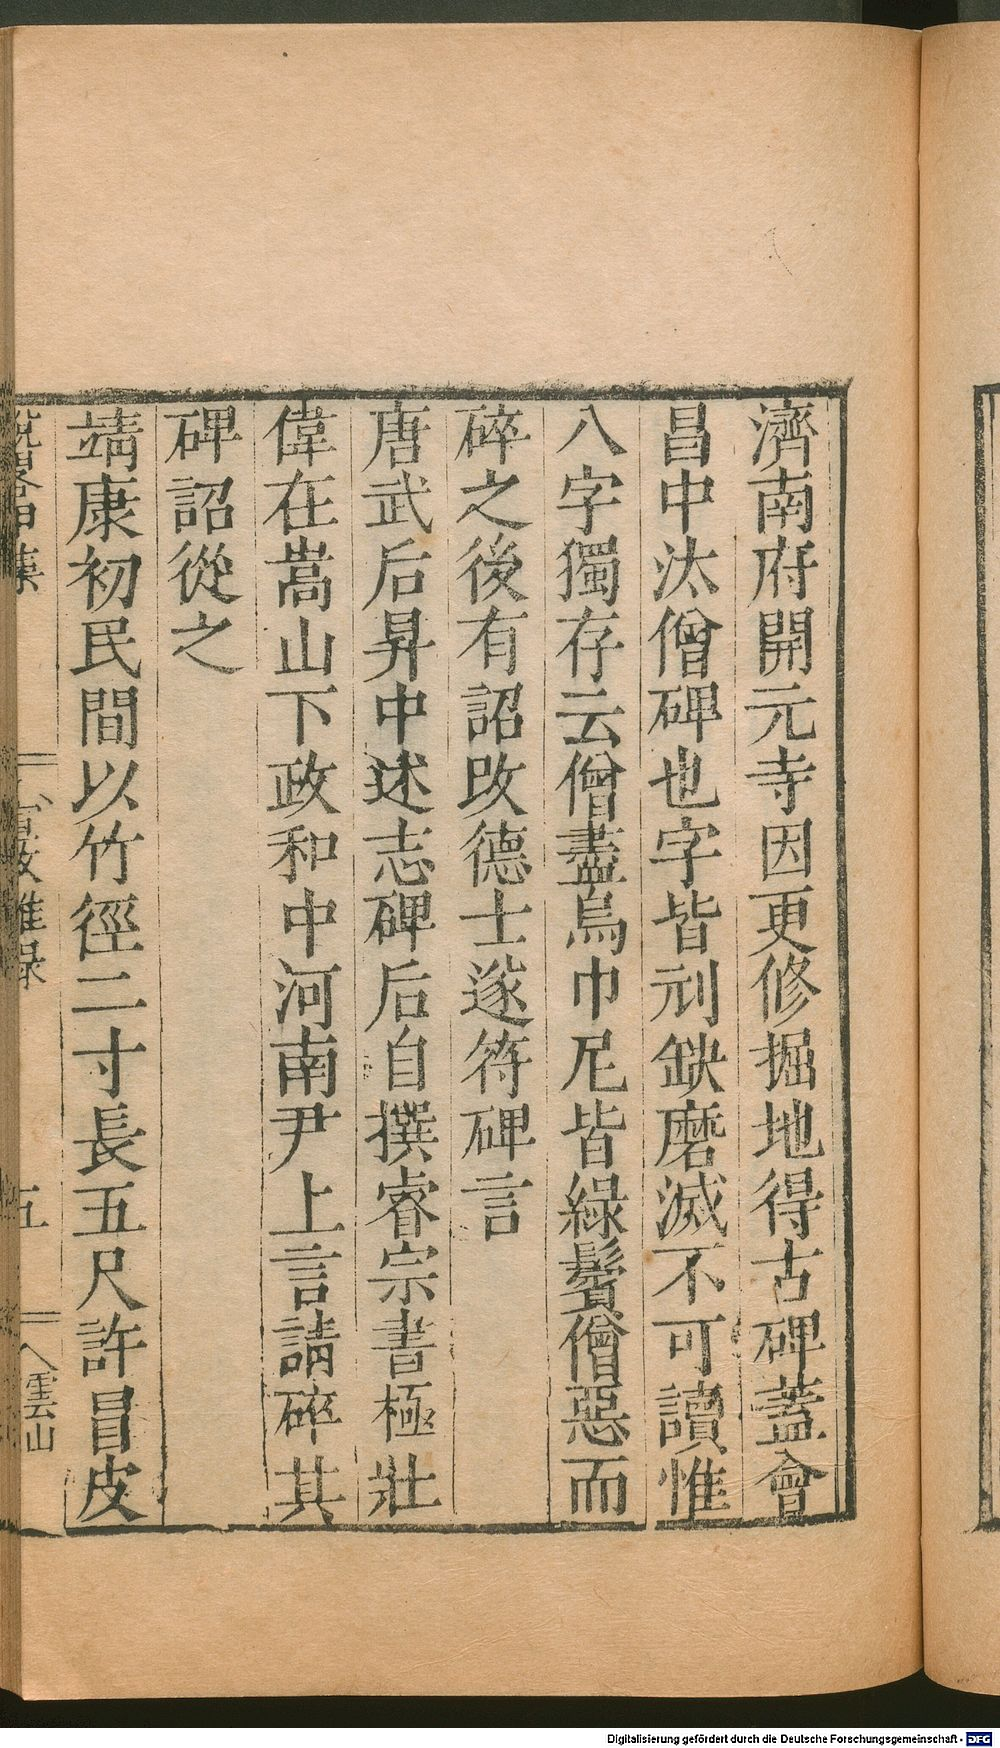 濟南府開元寺因更修掘地得古碑蓋會
昌中汰僧碑也字皆刓缺磨滅不可讀惟
八字獨存云僧盡烏巾尼皆綠鬢僧惡而
碎之後有詔改德士遂符碑言
唐武后昇中述志碑后自撰睿宗書極壯
偉在嵩山下政和中河南尹上言請碎其
碑詔從之
靖康初民間以竹徑二寸長五尺許冒皮
五
雲山
Digitalisierung gefördert durch die Deutsche Forschungsgemeinschaft - DFG